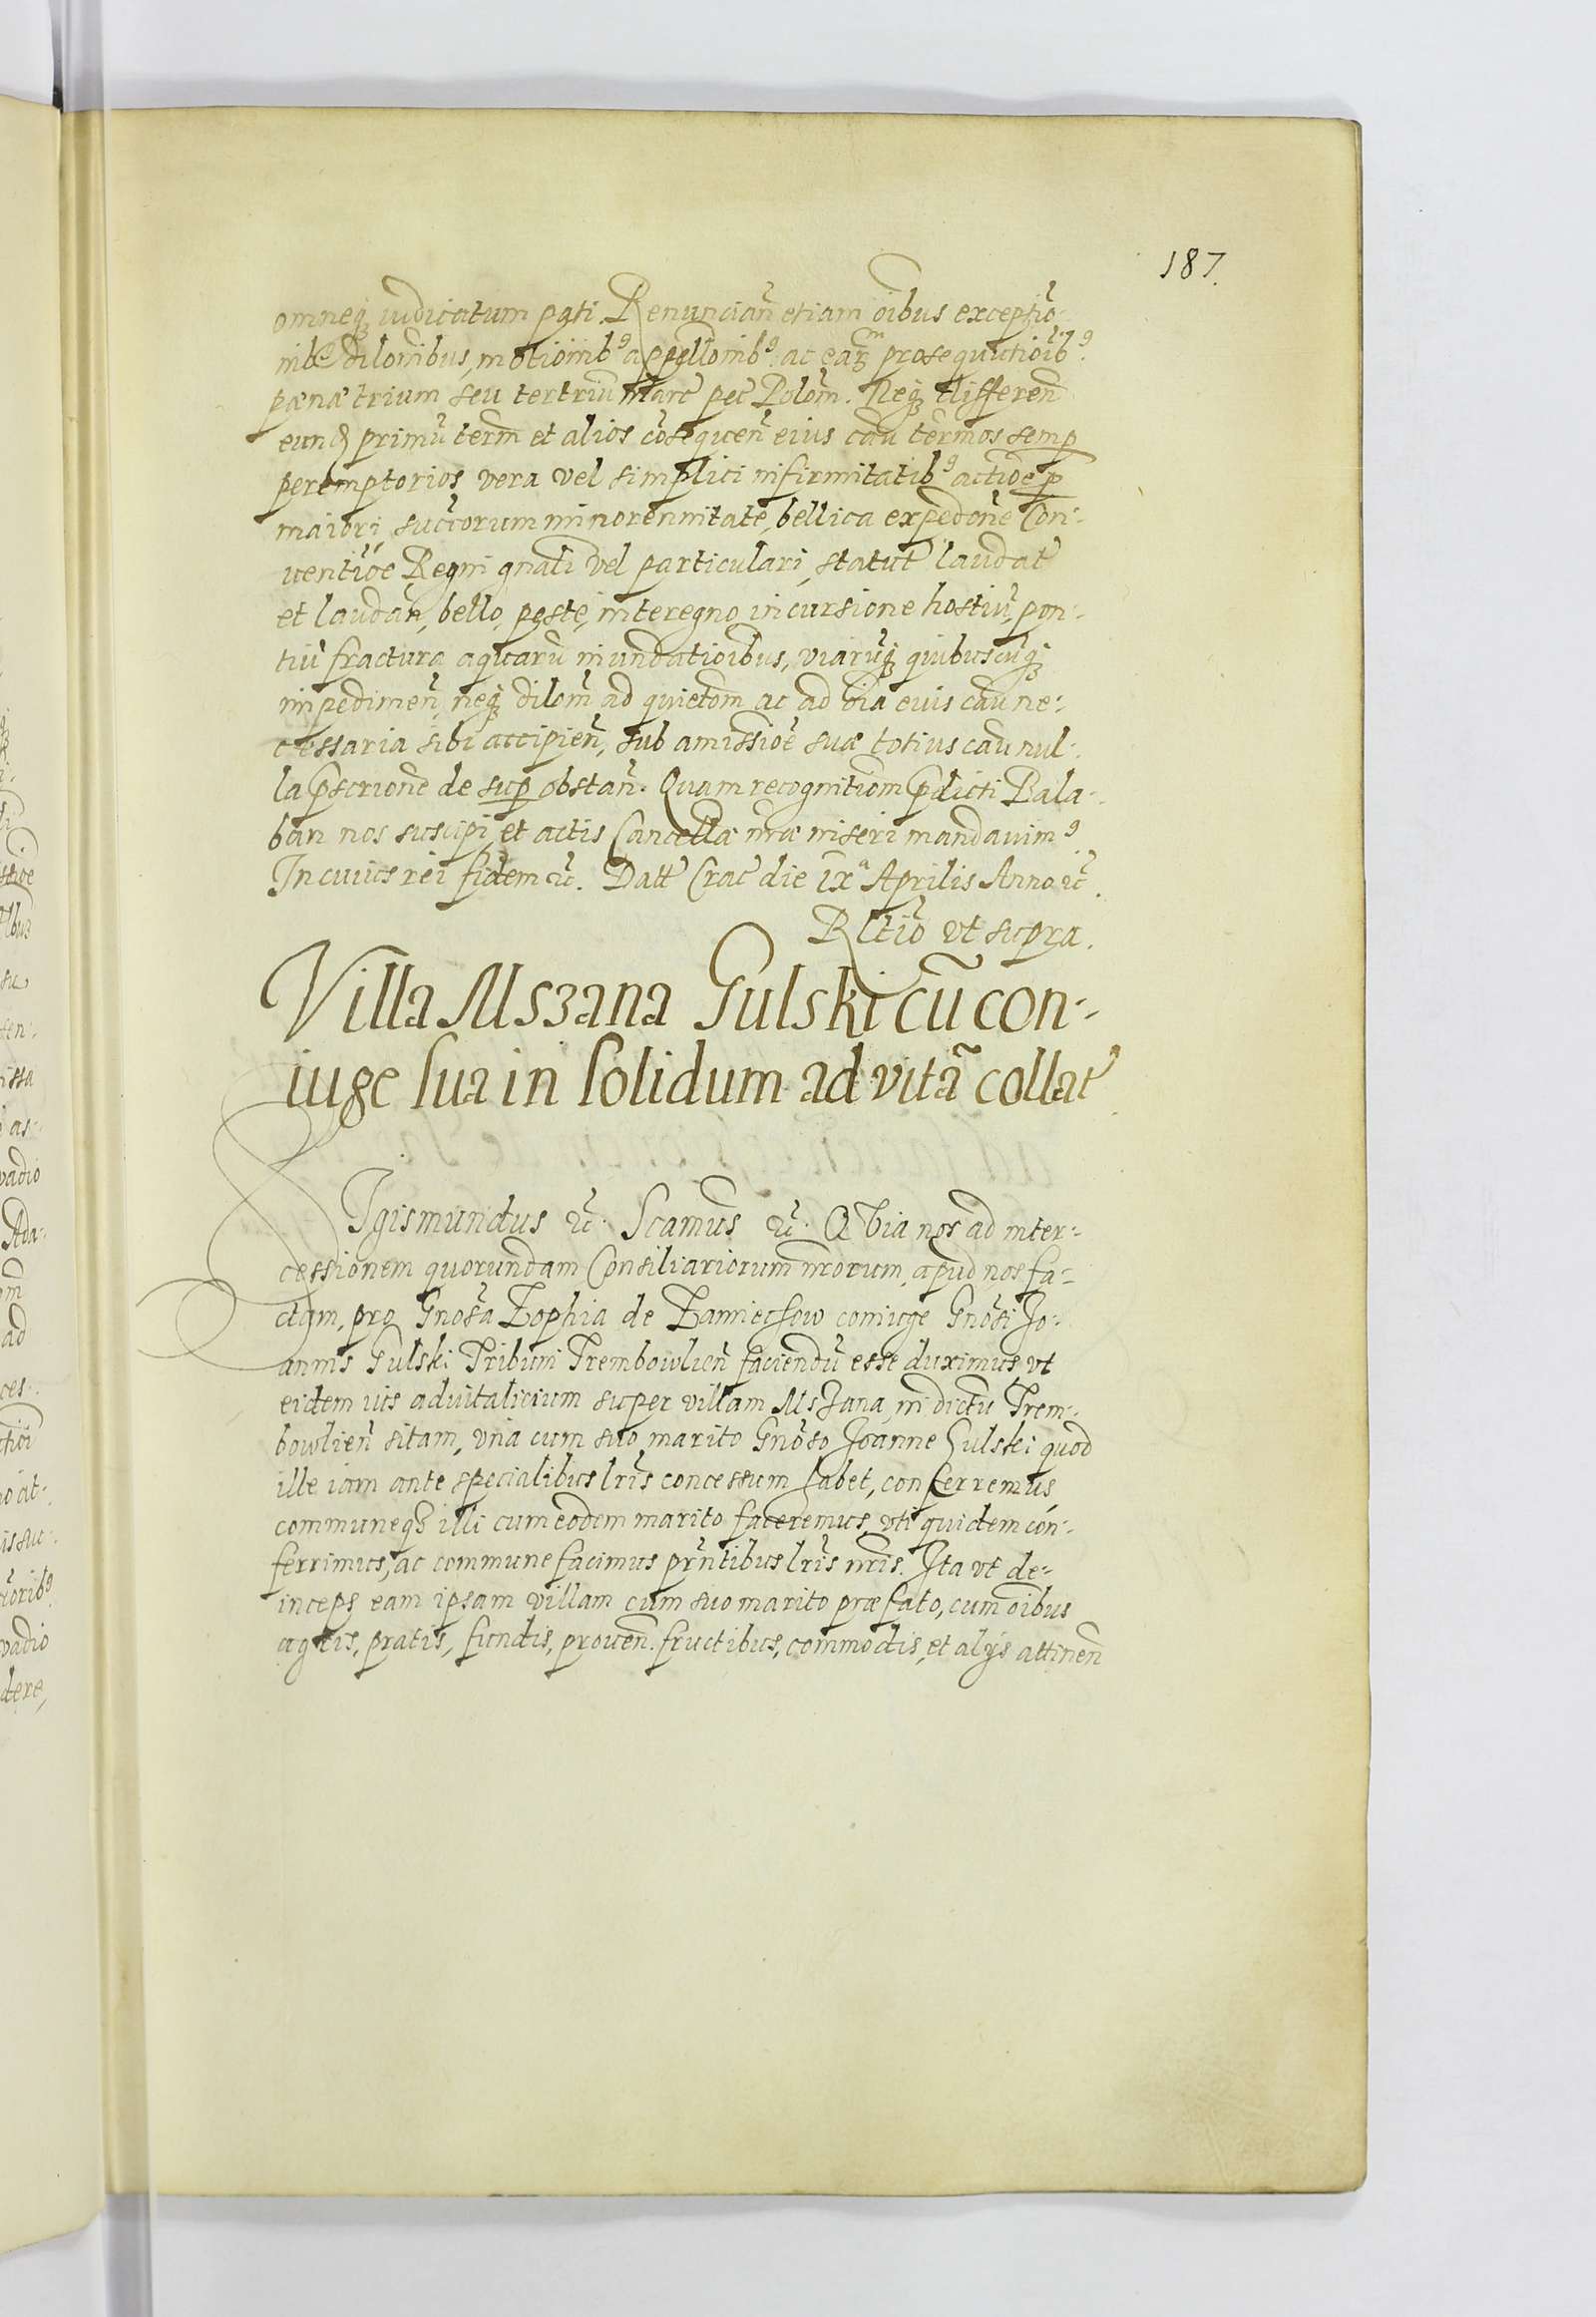 187.
omneq̃ iudicatum pati. Renuncian̄ etiam oībus exceptiō-
nib⁹ dilonibus, motioīnib⁹ appellōnib⁹ ac earᵐ prosequutioīb⁹.
pænæ trium seu tertriū Marc pec Polōm. Neq̃ differen̄
eund primū term̄ et alios cōsequen̄ eius cau termōs semp
peremptorios vera vel simplici infirmitatib⁹ actiōe p
maiori, succorum minorennitate, bellica expedōne Con-
uentiōe Regni gn̄ali vel particulari, statut laudat
et laudan̄, bello, peste, interegno, incursione hostiū, pon-
tiū fractura aquarū inundatioībus, viarūq̃ quibuscūq̃
impedimen̄, neq̃ dilom̄ ad quietom̄ ac ad oīa euis cau ne-
cessaria sibi accipien̄, sub amissiōe suæ totius cau nul-
la pscriōne de sup obstan̄. Quam recognitiom̄ pdicti Bala-
ban nos suscipi et actis Cancellæ nr̄æ inseri mandauim⁹
In cuius rei fidem ꝛc. Datt Crac die IXᵃ Aprilis Anno ꝛc.
Rltiō vt supra.
Villa Mszana Gulski cū con-
iuge sua in solidum ad vitā collat
Sigismundus ꝛc. Scamūs ꝛc. Q Via nos ad inter-
cessionem quorundam Consiliariorum nr̄orum, apud nos fa-
ctam, pro Gnōsa Zophia de Zamiechow coniuge Gnōsi Jo-
annis Gulski Tribuni Trembowlien̄ faciendū esse duximus, vt
eidem ius aduitalicium super villam Mszana, in dictū Trem-
bowlien̄ sitam, vna cum suo marito Gnōso Joanne Gulski quod
ille iam ante specialibus lr̄is concessum habet, conferremus,
communeq̃ illi cum eodem marito faceremus, vti quidem con-
ferrimus, ac commune facimus prn̄tibus lr̄is nr̄is. Ita vt de-
inceps eam ipsam villam cum suo marito præfato, cum oībus
agris, pratis, fundis, prouen̄. fructibus, commodis, et alijs attinen̄